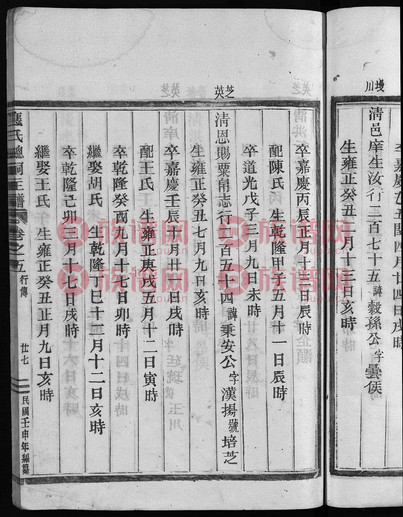 墈川
卒嘉慶乙丑閏四月初八日戌時
清邑庠生汝行二百七十五諱毅孫公字雲侯
生雍正癸丑二月十三日亥時
芝英
卒嘉慶丙辰正月十三日辰時
配陳氏 生乾隆甲子五月十一日辰時
卒道光戊子二月九日未時
清恩賜粟帛志行一百五十四諱秉安公字漢揚號培芝
生雍正癸丑七月九日亥時
卒嘉慶壬辰十月廿一日戌時
配王氏 生雍正庚戌五月十二日寅時
卒乾隆癸酉九月十七日卯時
繼娶胡氏 生乾隆丁巳十二月十二日亥時
卒乾隆己卯三月十七日戌時
繼娶王氏 生雍正癸丑正月九日亥時
氏總祠主譜 卷之五 行傳 廿七 民國壬申年編纂
族谱网